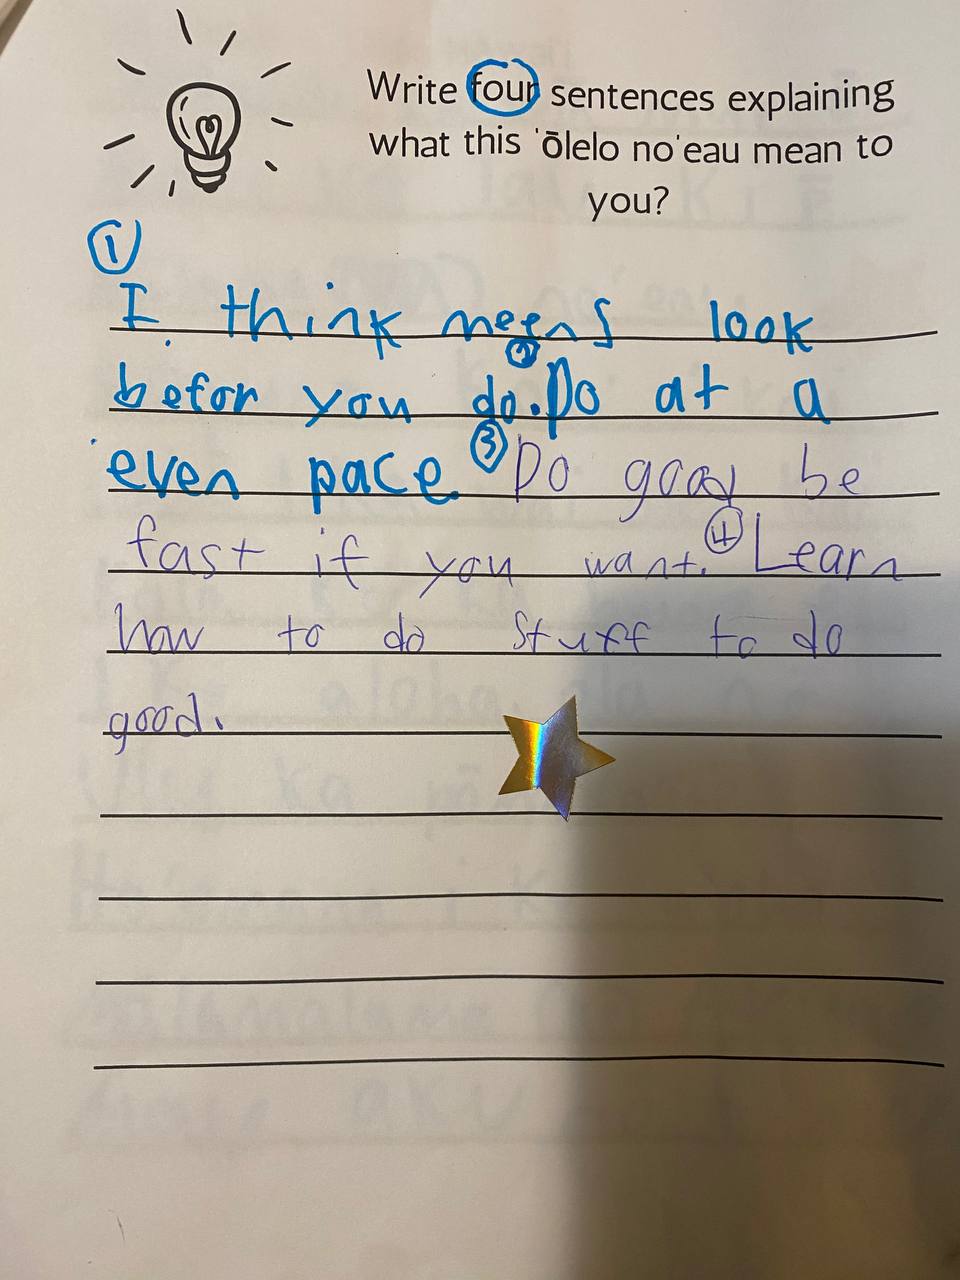 Write four sentences explaining
what this ʻōlelo noʻeau mean to
you?
①
I think means look
befor you do. ② Do at a
even pace. ③ Do good be
fast if you want. ④ Learn
how to do stuff to do
good.